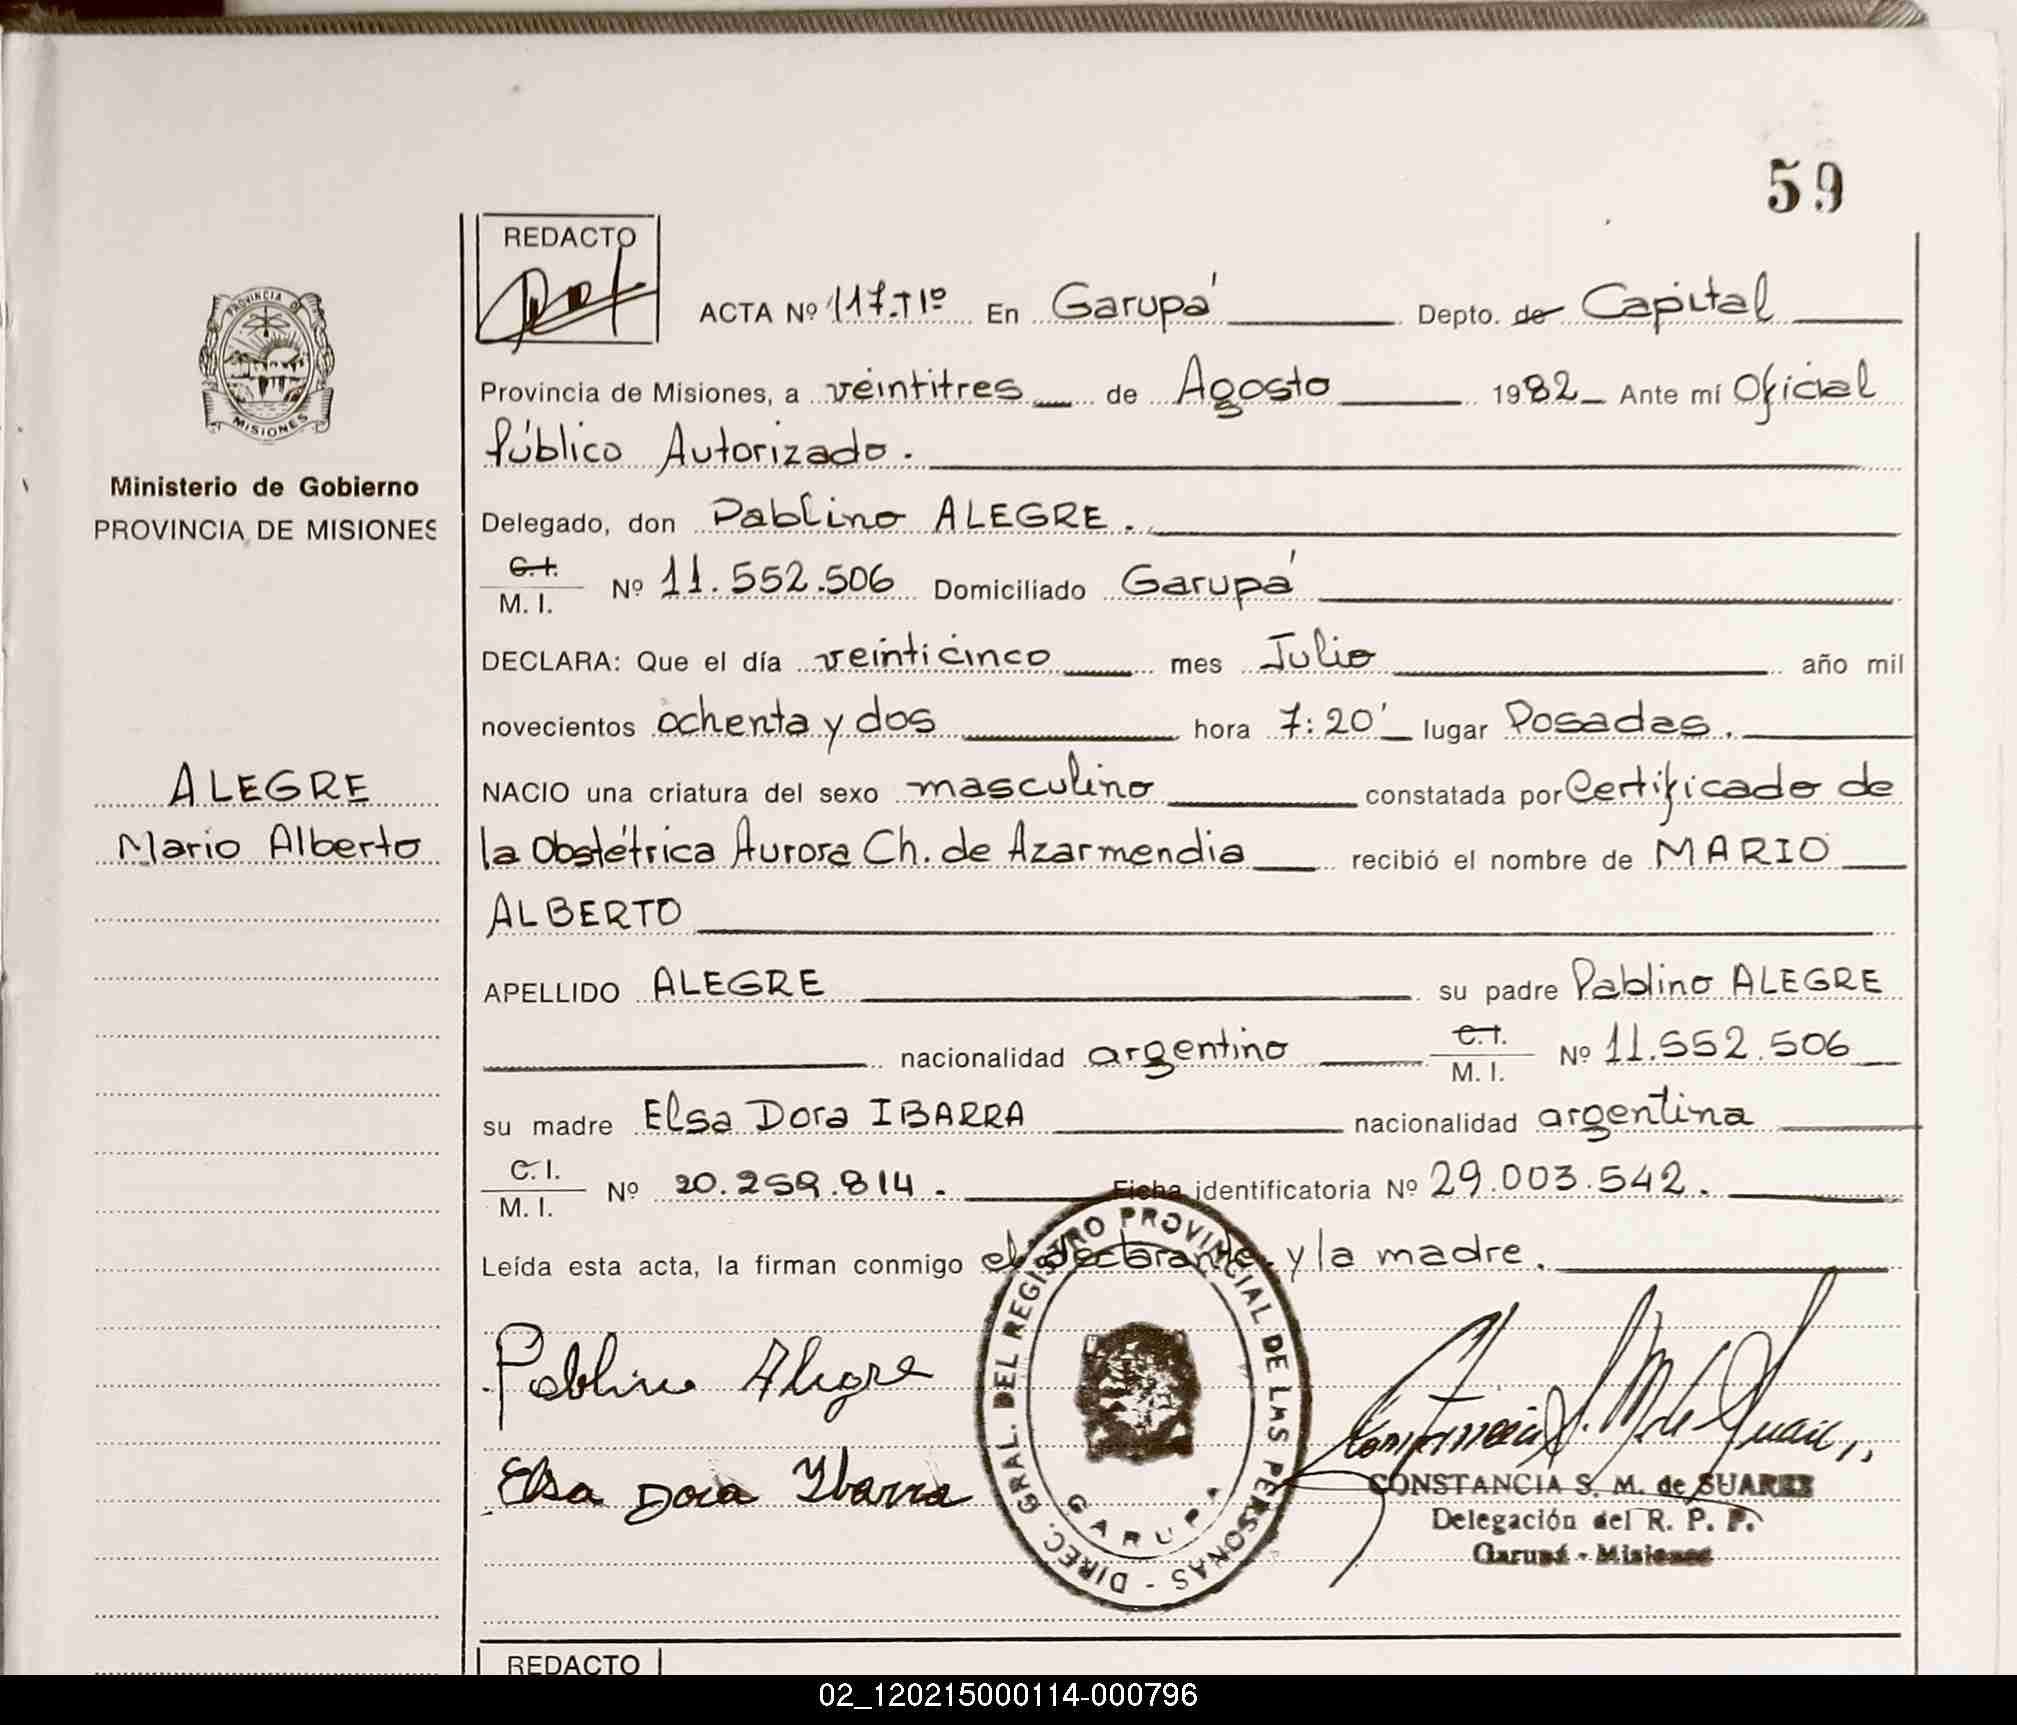 59
REDACTO
ACTA Nº 117.T1º En Garupá Depto. de Capital
PROVINCIA DE
MISIONES
Provincia de Misiones, a veintitres de Agosto 1982 Ante mí Oficial
Público Autorizado.
Ministerio de Gobierno
PROVINCIA DE MISIONES
Delegado, don Pablino ALEGRE.
C.I.
M. I. Nº 11.552.506 Domiciliado Garupá
DECLARA: Que el día veinticinco mes Julio año mil
novecientos ochenta y dos hora 7:20' lugar Posadas.
ALEGRE
Mario Alberto
NACIO una criatura del sexo masculino constatada por Certificado de
la Obstétrica Aurora Ch. de Azarmendia recibió el nombre de MARIO
ALBERTO
APELLIDO ALEGRE su padre Pablino ALEGRE
nacionalidad argentino C.I.
M. I. Nº 11.552.506
su madre Elsa Dora IBARRA nacionalidad argentina
C. I.
M. I. Nº 20.259.814. Ficha identificatoria Nº 29.003.542.
Leída esta acta, la firman conmigo el declarante y la madre.
Pablino Alegre
Elsa Dora Ybarra
DIREC. GRAL. DEL REGISTRO PROVINCIAL DE LAS PERSONAS -
GARUPA
CONSTANCIA S. M. de SUAREZ
Delegación del R. P. P.
Garupá - Misiones
REDACTO
02_120215000114-000796